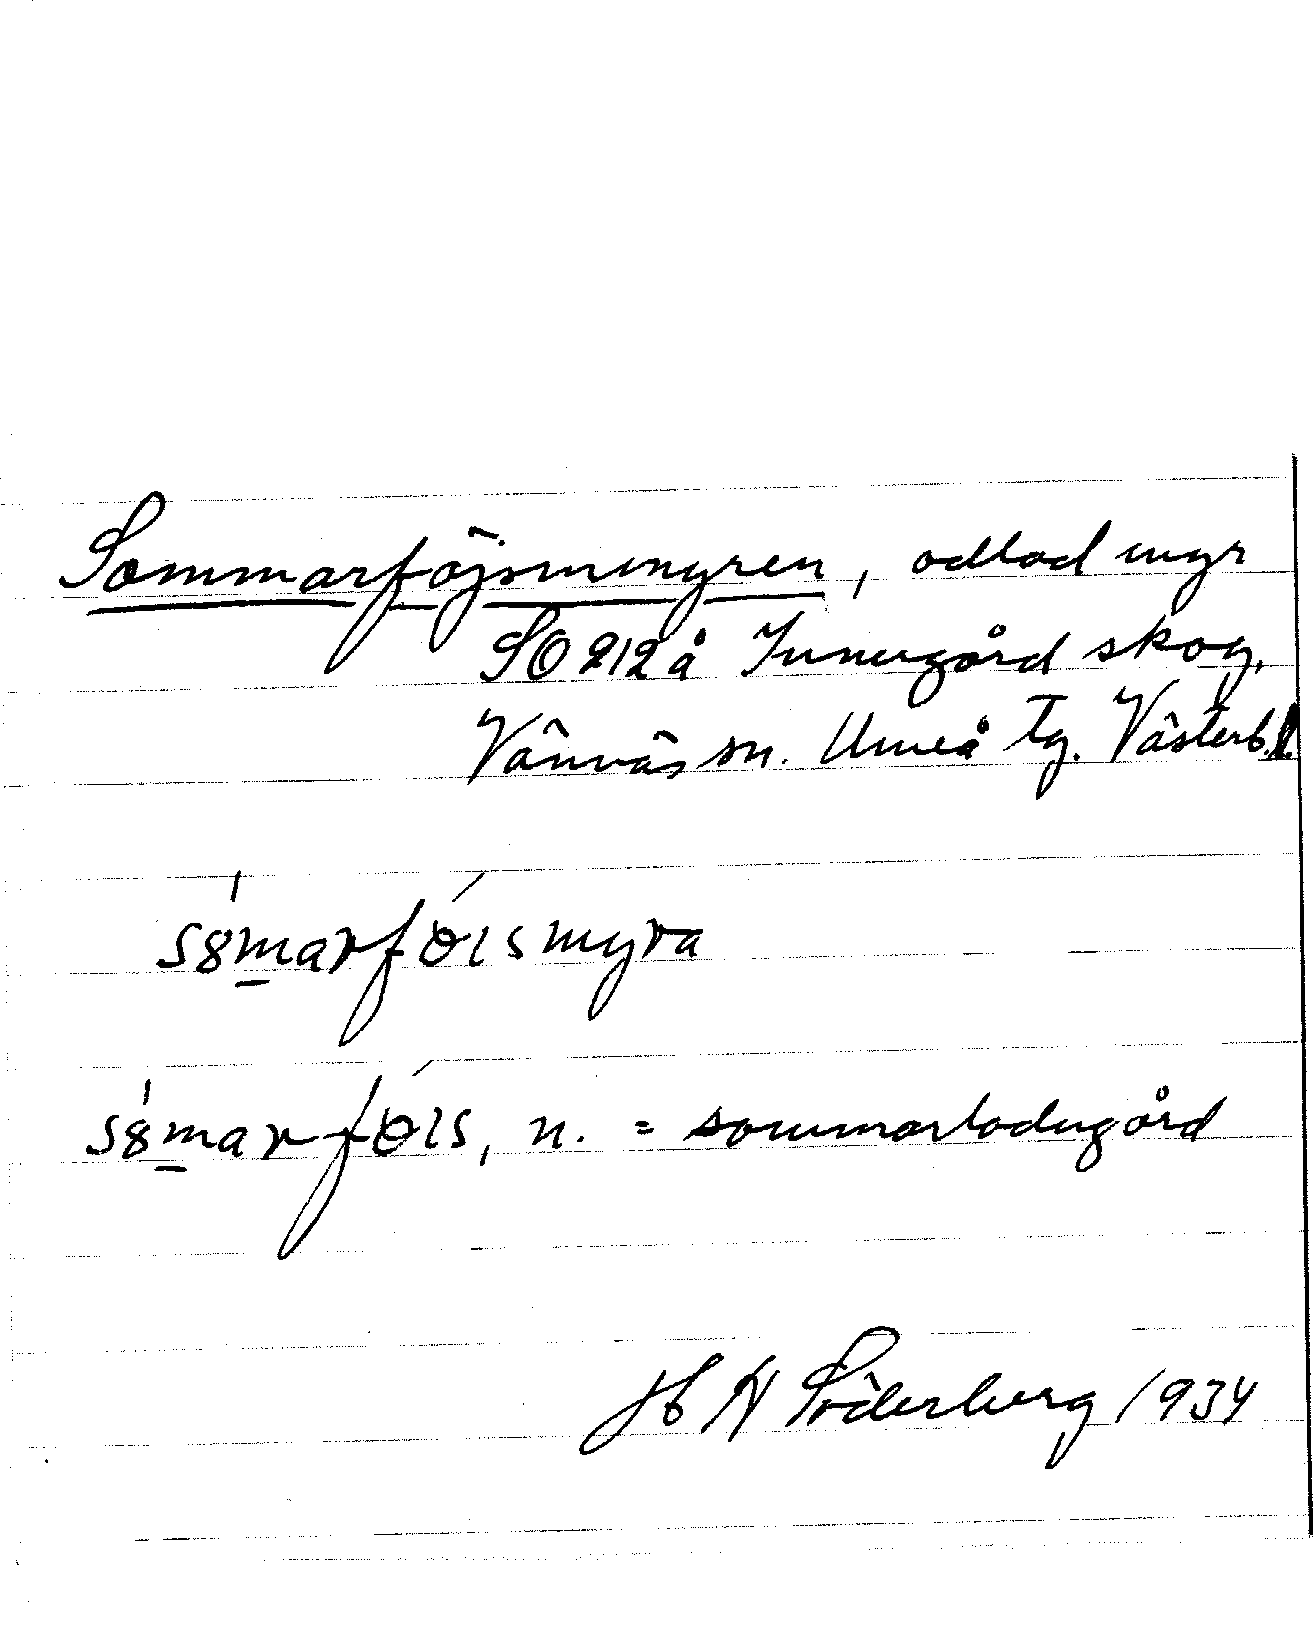 Sommarföjsmyren, odlad myr
SO 212 å Innergård skog,
Vännäs sn. Umeå tg. Västerb. l.
s8marfөısmyra
s8marfөıs, n. = sommarladugård
H Söderberg 1934